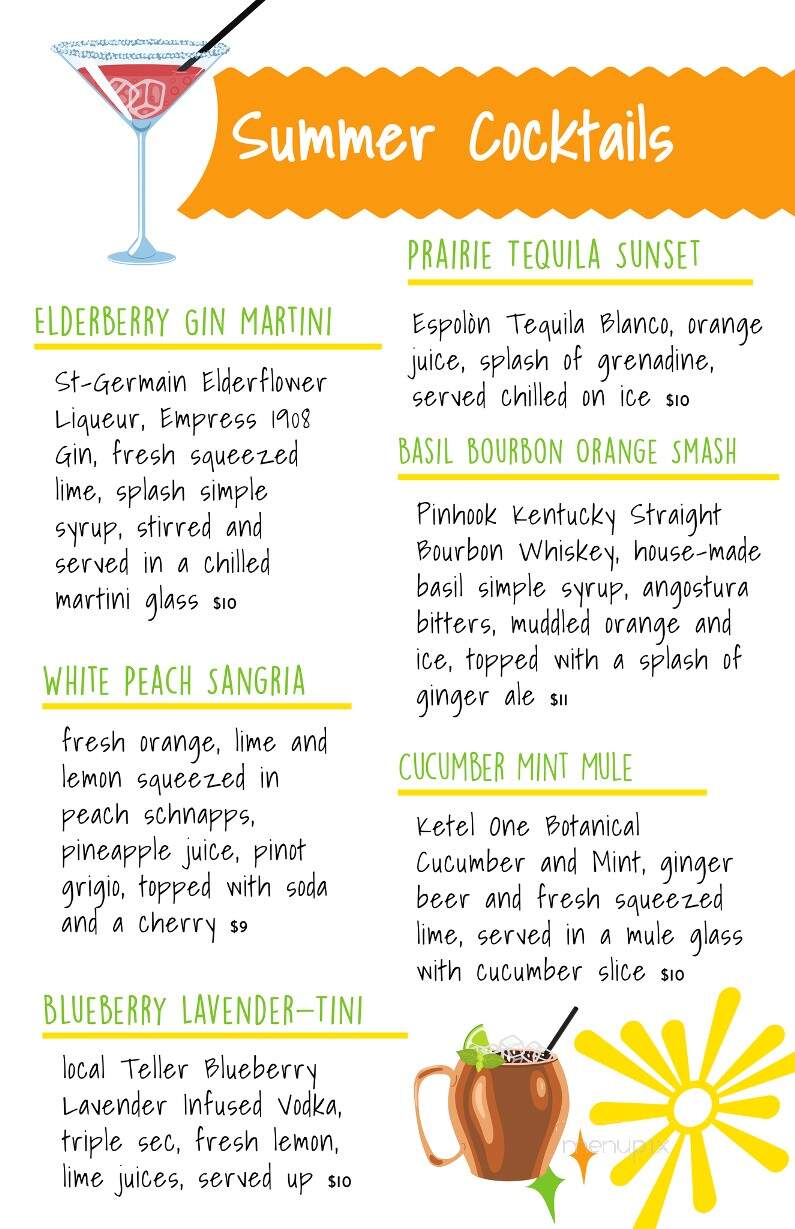 Summer Cocktails
ELDERBERRY GIN MARTINI
St-Germain Elderflower
Liqueur, Empress 1908
Gin, fresh squeezed
lime, splash simple
syrup, stirred and
served in a chilled
martini glass $10
WHITE PEACH SANGRIA
fresh orange, lime and
lemon squeezed in
peach schnapps,
pineapple juice, pinot
grigio, topped with soda
and a cherry $9
BLUEBERRY LAVENDER-TINI
local Teller Blueberry
Lavender Infused Vodka,
triple sec, fresh lemon,
lime juices, served up $10
PRAIRIE TEQUILA SUNSET
Espolòn Tequila Blanco, orange
juice, splash of grenadine,
served chilled on ice $10
BASIL BOURBON ORANGE SMASH
Pinhook Kentucky Straight
Bourbon Whiskey, house-made
basil simple syrup, angostura
bitters, muddled orange and
ice, topped with a splash of
ginger ale $11
CUCUMBER MINT MULE
Ketel One Botanical
Cucumber and Mint, ginger
beer and fresh squeezed
lime, served in a mule glass
with cucumber slice $10
menupix